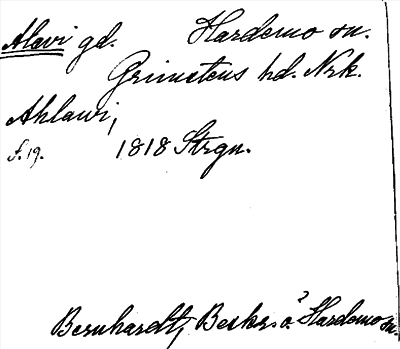 Alavi gd. Hardemo sn.
Grimstens hd. Nrk.
Ahlawi,
f. 19. 1818 Strgn.
Bernhardt, Beskr. o. Hardemo sn.